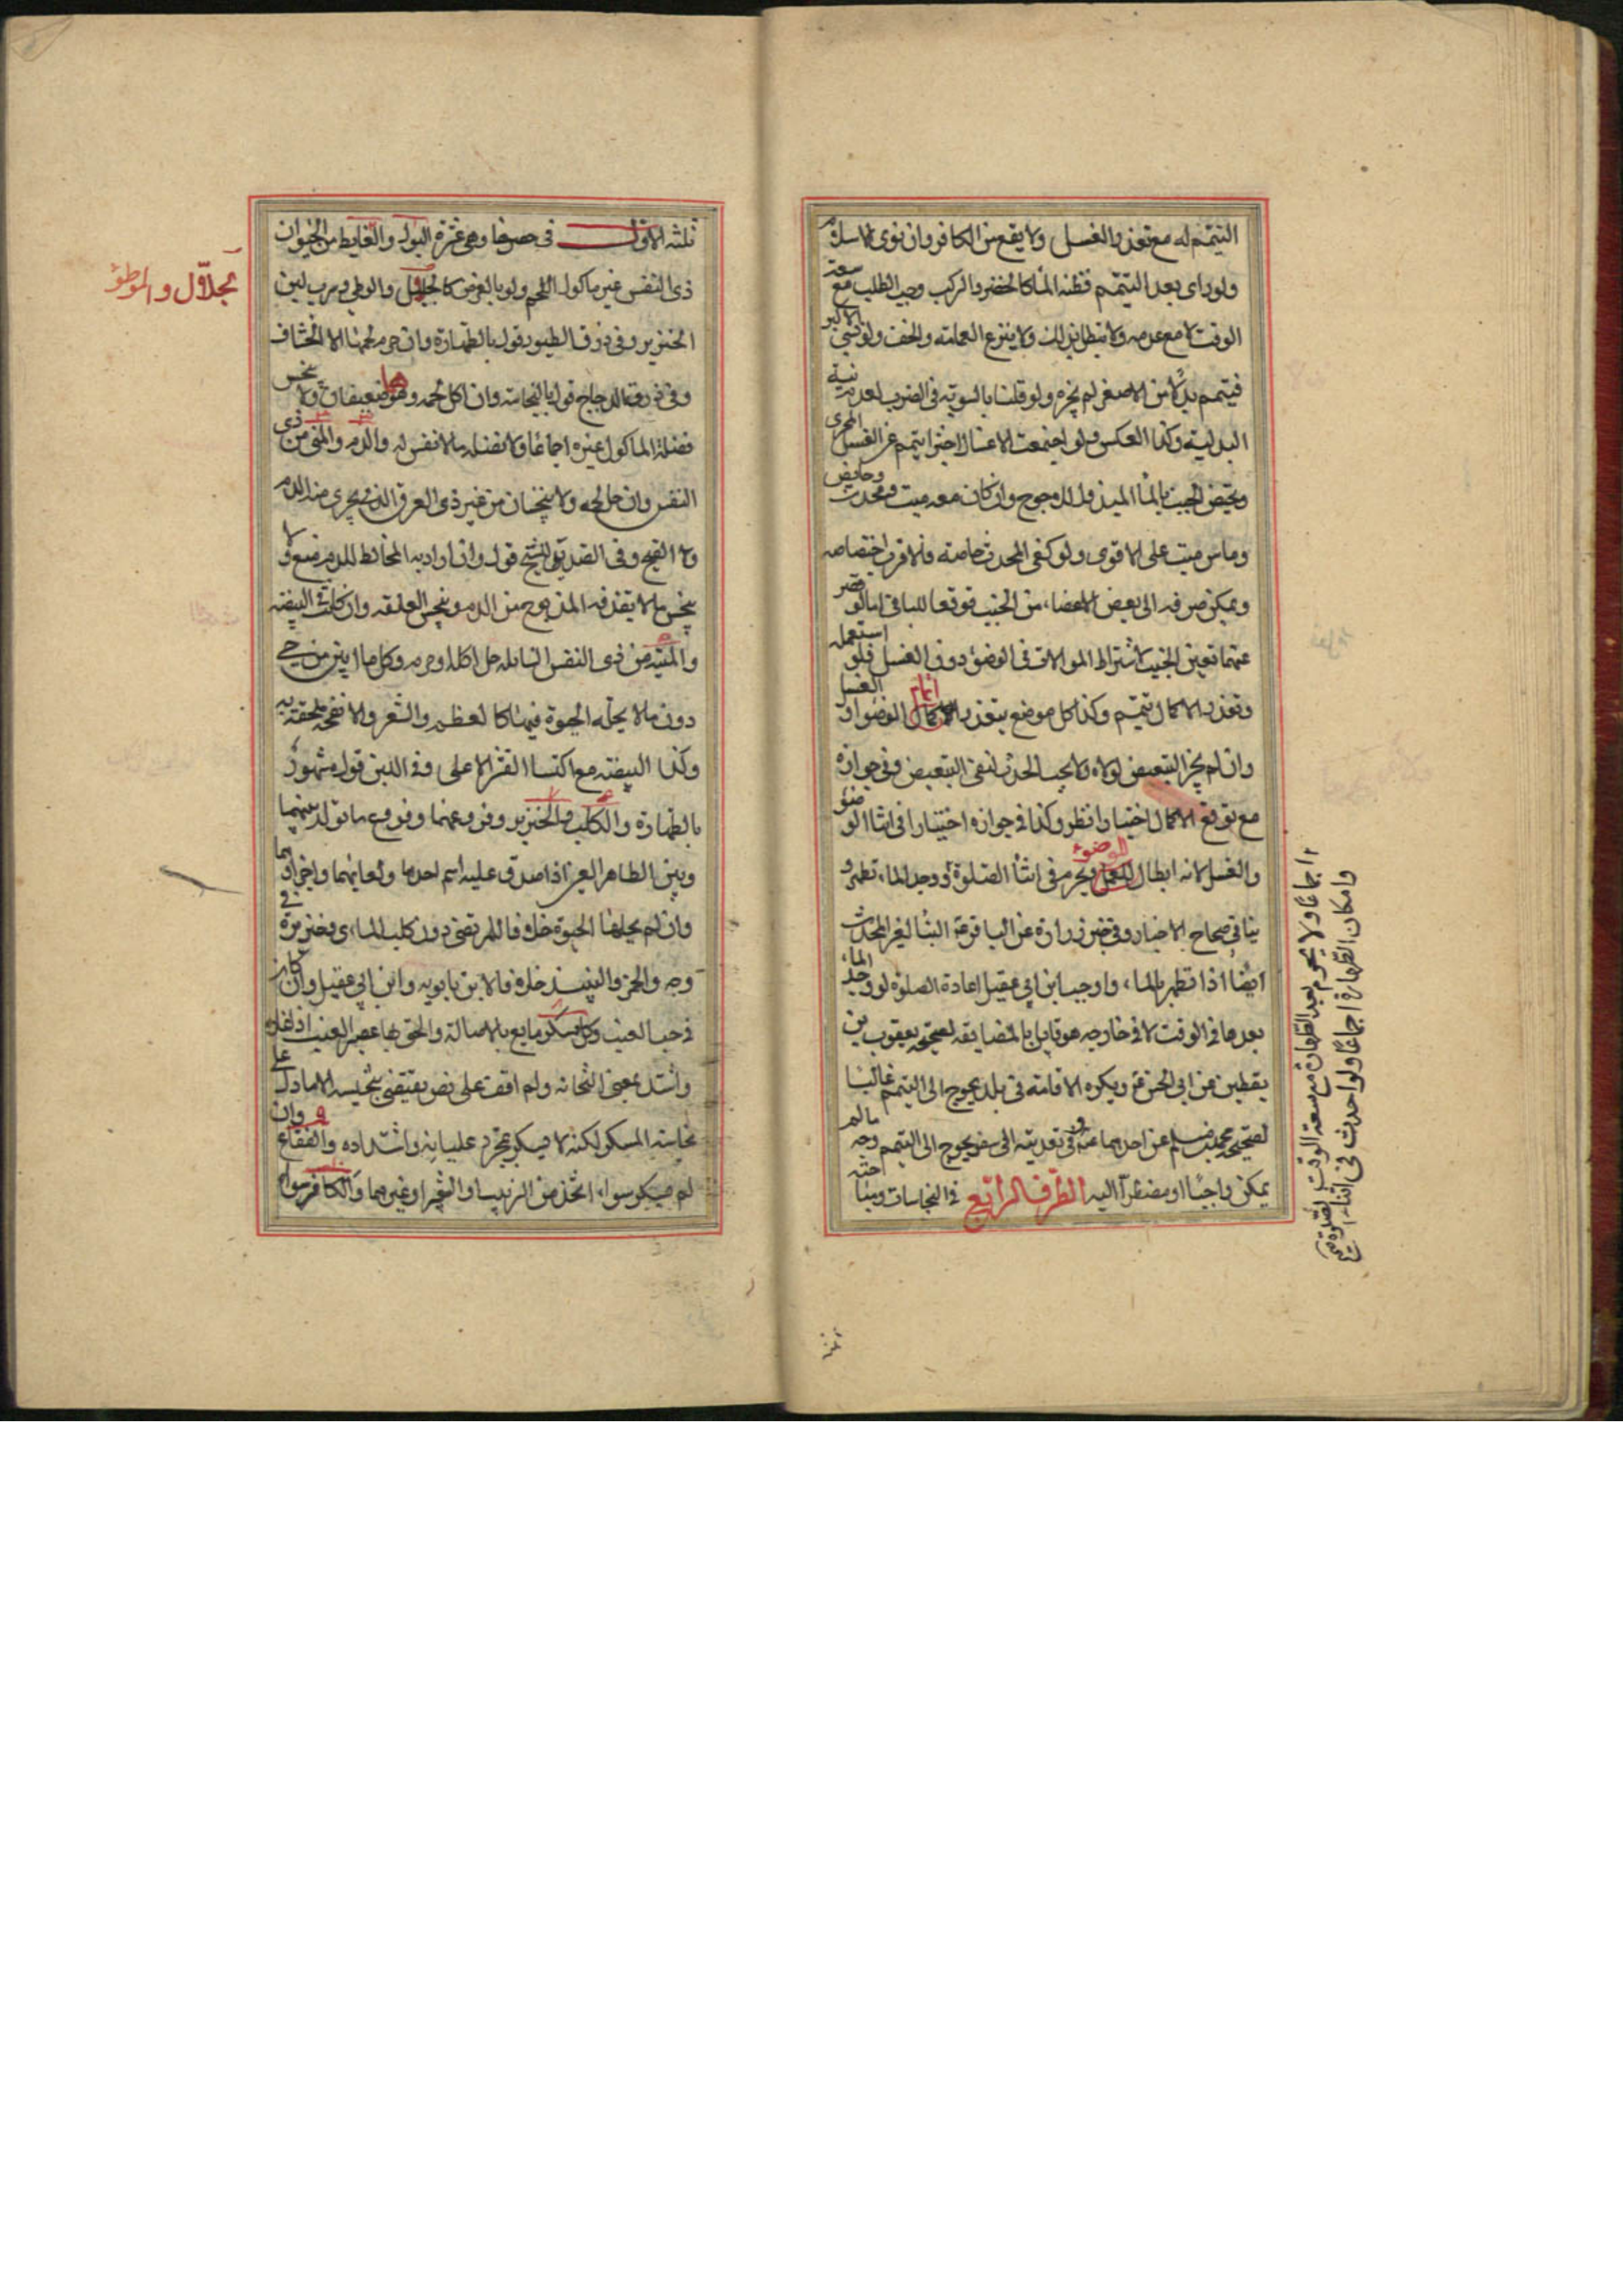 التيمم له مع تعذر الغسل ولا يقع من الكافر وان نوى الاسلام
ولو راى بعد التيمم فظنه الماء كالخضر والركب وجب الطلب مع سعة
الوقت لا مع عدمه ولا يبطل بذلك ولا ينزع العمامة والخف ولو نسي الاكبر
فتيمم بدلا من الاصغر لم يجزه ولو قلنا بالسوية في الضرب لعدم نية
البدلية وكذا العكس ولو اجتمعت الاغسال اجتزا بتيمم عن الغسل المجزي
ويختص الجنب بالماء المبذول للاحوج وان كان معه ميت ومحدث وحايض
وماس ميت على الاقوى ولو كفى المحدث خاصة فالاقرب اختصاصه
ويمكن صرفه الى بعض اعضاء من الجنب توقعا للباقي اما لو قصر
عنهما تعين الجنب لاشتراط الموالاة في الوضوء دون الغسل فلو استعمله
وتعذر الاكمال تيمم وكذا كل موضع يتعذر اتمام الوضوء او الغسل
وان لم يجز التبعيض لولاه ولا يجب الحدث لنفي التبعيض وفي جوازه
مع توقع الاكمال اختيارا نظر وكذا في جوازه اختيارا في اثناء الوضوء
والغسل لانه ابطال للعمل الوضوء ويحرم في اثناء الصلوة لو وجد الماء، تطهر و
بنا في صحاح الاخبار وفي خبر زرارة عن الباقر عۤ البناء لغير المحدث
ايضا اذا تطهر بالماء، واوجب ابن ابي عقيل اعادة الصلوة لو وجد الماء
بعدها في الوقت لا في خارجه هو قايل بالمضايقة لصحيحة يعقوب بن
يقطين عن ابي الحسن عۤ ويكره الاقامة في بلد يحوج الى التيمم غالبا
لصحيحة محمد بن مسلم عن احدهما عۤ وفي تعديته الى سفر يحوج الى التيمم وجه ما لم
يمكن واجبا او مضطرا اليه الطرف الرابع في النجاسات وهنا ابحثة
اجماعا ولا يحرم بعد الطهارة مع سعة الوقت لصلوة
وامكان الطهارة اجماعا ولو احدث في اثنائه
ثلثة الاول في حصرها وهي عشرة البول والغايط من الحيوان
ذي النفس غير ماكول اللحم ولو بالعرض كالجلال والموطوء وشرب لبن
الخنزير وفي ذرق الطيور قول بالطهارة وان حرم لحمها الا الخشاف
وفي ذرق الدجاج قول بالنجاسة وان اكل لحمه وهما ضعيفان ولا نجس
فضلة الماكول غيره اجماعا ولا فضلة ما لا نفس له والدم والمني من ذي
النفس وان حل لحمه ولا ينجسان من غير ذي العرق الذي يجري منه الدم
ولا القيح وفي الصديد للشيخ قول وان اراد به المخالط للدم منع ولا
ينجس ما لا يقذفه المذبوح من الدم وينجس العلقة وان كانت في البيضة
والميتة من ذي النفس السائلة حل اكله او حرم وكل ما ابين من حي
دون ما لا يحله الحيوة فيهما كالعظم والشعر والانفحة ملحقة به
وكذا البيضة مع اكتساء القشر الاعلى وفي اللبن قول مشهور
بالطهارة والكلب والخنزير وفروعهما وفروع ما تولد بينهما
وبين الطاهر العين اذا صدق عليه اسم احدهما ولعابهما واجزاؤهما
وان لم يحلها الحيوة خلافا للمرتضى دون كلب الماء في وخنزيره
وجه والخمر والنبيذ خلافا لابن بابويه وابن ابي عقيل وان كان
في حب العنب وكل مسكر مايع بالاصالة والحق بها عصير العنب اذا غلا
واشتد بمعنى الثخانة ولم اقف على نص يقتضي تنجيسه الا ما دل على
نجاسة المسكر لكنه لا يسكر بمجرد غليانه واشتداده والفقاع وان
لم يسكر سواء، اتخذ من الزبيب او الشعير او غيرهما والكافر سواء
الجلال والموطوء